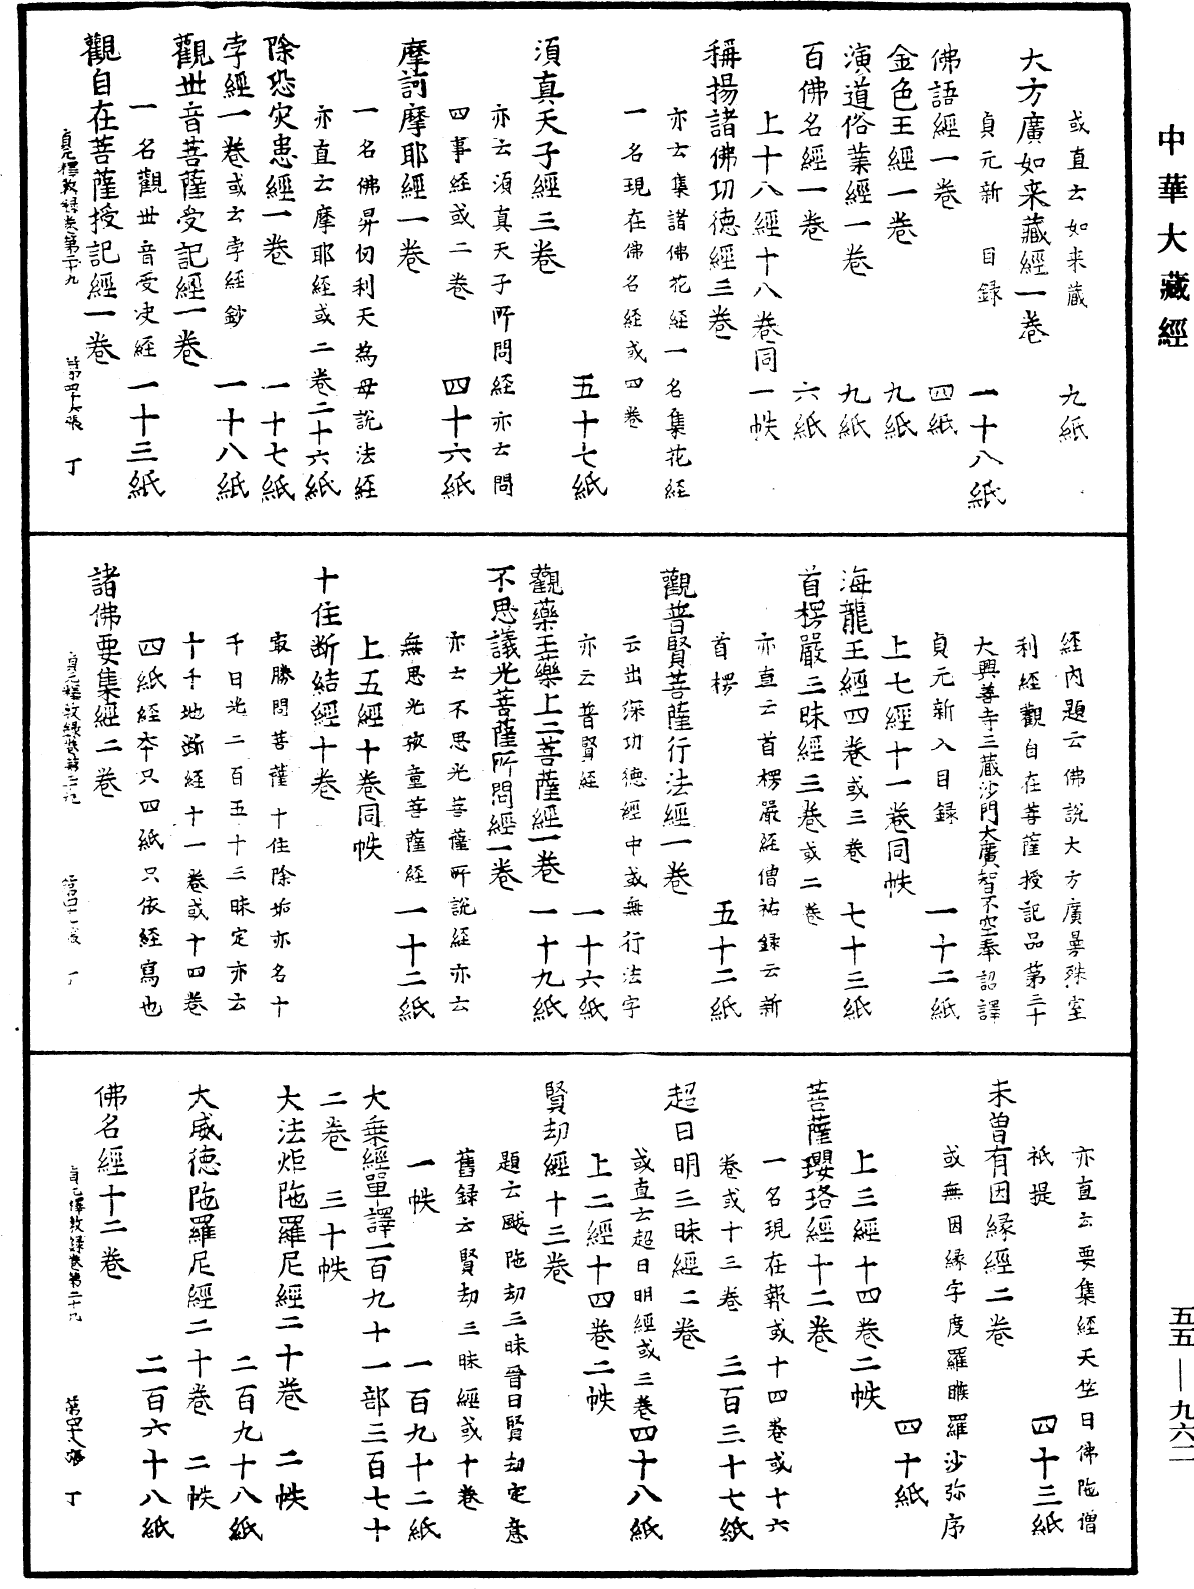 中華大藏經
或直云如来藏　九紙
大方廣如来藏經一卷
貞元新　目録　一十八紙
佛語經一卷　四紙
金色王經一卷　九紙
演道俗業經一卷　九紙
百佛名經一卷　六紙
上十八經十八卷同　一帙
稱揚諸佛功德經三卷
亦云集諸佛花經一名集花經
一名現在佛名經或四卷
五十七紙
須真天子經三卷
亦云須真天子所問經亦云問
四事經或二卷　四十六紙
摩訶摩耶經一卷
一名佛昇忉利天為母說法經
亦直云摩耶經或二卷二十六紙
除恐灾患經一卷　一十七紙
孛經一卷或云孛經鈔　一十八紙
觀世音菩薩受記經一卷
一名觀世音受决經　一十三紙
觀自在菩薩授記經一卷
貞元釋教録卷第二十九　第四十六張　丁
經內題云佛說大方廣曼殊室
利經觀自在菩薩授記品第三十
大興善寺三藏沙門大廣智不空奉詔譯
貞元新入目録　一十二紙
上七經十一卷同帙
海龍王經四卷或三卷　七十三紙
首楞嚴三昧經三卷或二卷
亦直云首楞嚴經僧祐録云新
首楞　五十二紙
觀普賢菩薩行法經一卷
云出深功德經中或無行法字
亦云普賢經　一十六紙
觀藥王藥上二菩薩經一卷　一十九紙
不思議光菩薩所問經一卷
亦云不思光菩薩所說經亦云
無思光孩童菩薩經　一十二紙
上五經十卷同帙
十住断結經十卷
㝡勝問菩薩十住除垢亦名十
千日光二百五十三昧定亦云
十千地断經十一卷或十四卷
四紙經本只四紙只依經寫也
諸佛要集經二卷
亦直云要集經天竺曰佛陁僧
祇提　四十三紙
未曾有因縁經二卷
或無因縁字度羅睺羅沙弥序
四十紙
上三經十四卷二帙
菩薩瓔珞經十二卷
一名現在報或十四卷或十六
卷或十三卷　三百三十七紙
超日明三昧經二卷
或直云超日明經或三卷四十八紙
上二經十四卷二帙
賢劫經十三卷
題云颰陁劫三昧晉曰賢劫定意
舊録云賢劫三昧經或十卷
一帙　一百九十二紙
大乗經單譯一百九十一部三百七十
二卷　三十帙
大法炬陁羅尼經二十卷　二帙
二百九十八紙
大威德陁羅尼經二十卷　二帙
二百六十八紙
佛名經十二卷
貞元釋教録卷第二十九　第四十八張　丁
五五—九六二